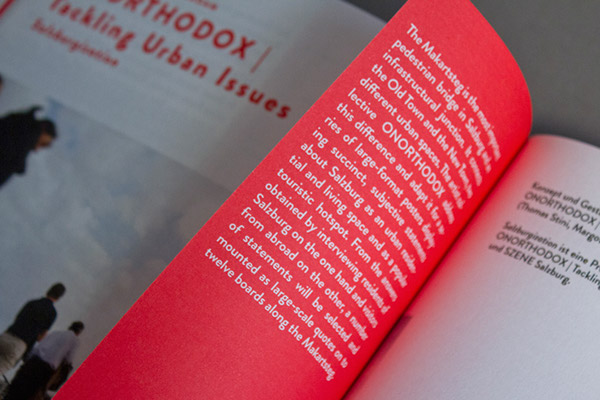 NORTHODOX |
Tackling Urban Issues
Salzburgination
The Makartsteg is the most
pedestrian bridge in Salzburg and
infrastructural junction. It
the Old Town and the New
different urban spaces. The artist col-
lective ONORTHODOX
this difference and adapt it for a se-
ries of large-format posters depict-
ing succinct, subjective statements
about Salzburg as an urban, residen-
tial and living space and as a popular
touristic hotspot. From the answers
obtained by interviewing residents of
Salzburg on the one hand and visitors
from abroad on the other, a number
of statements will be selected and
mounted as large-scale quotes on to
twelve boards along the Makartsteg.
Konzept und Gest
ONORTHODOX |
(Thomas Stini, Margo
Salzburgination ist eine Pr
ONORTHODOX | Tackling
und SZENE Salzburg.